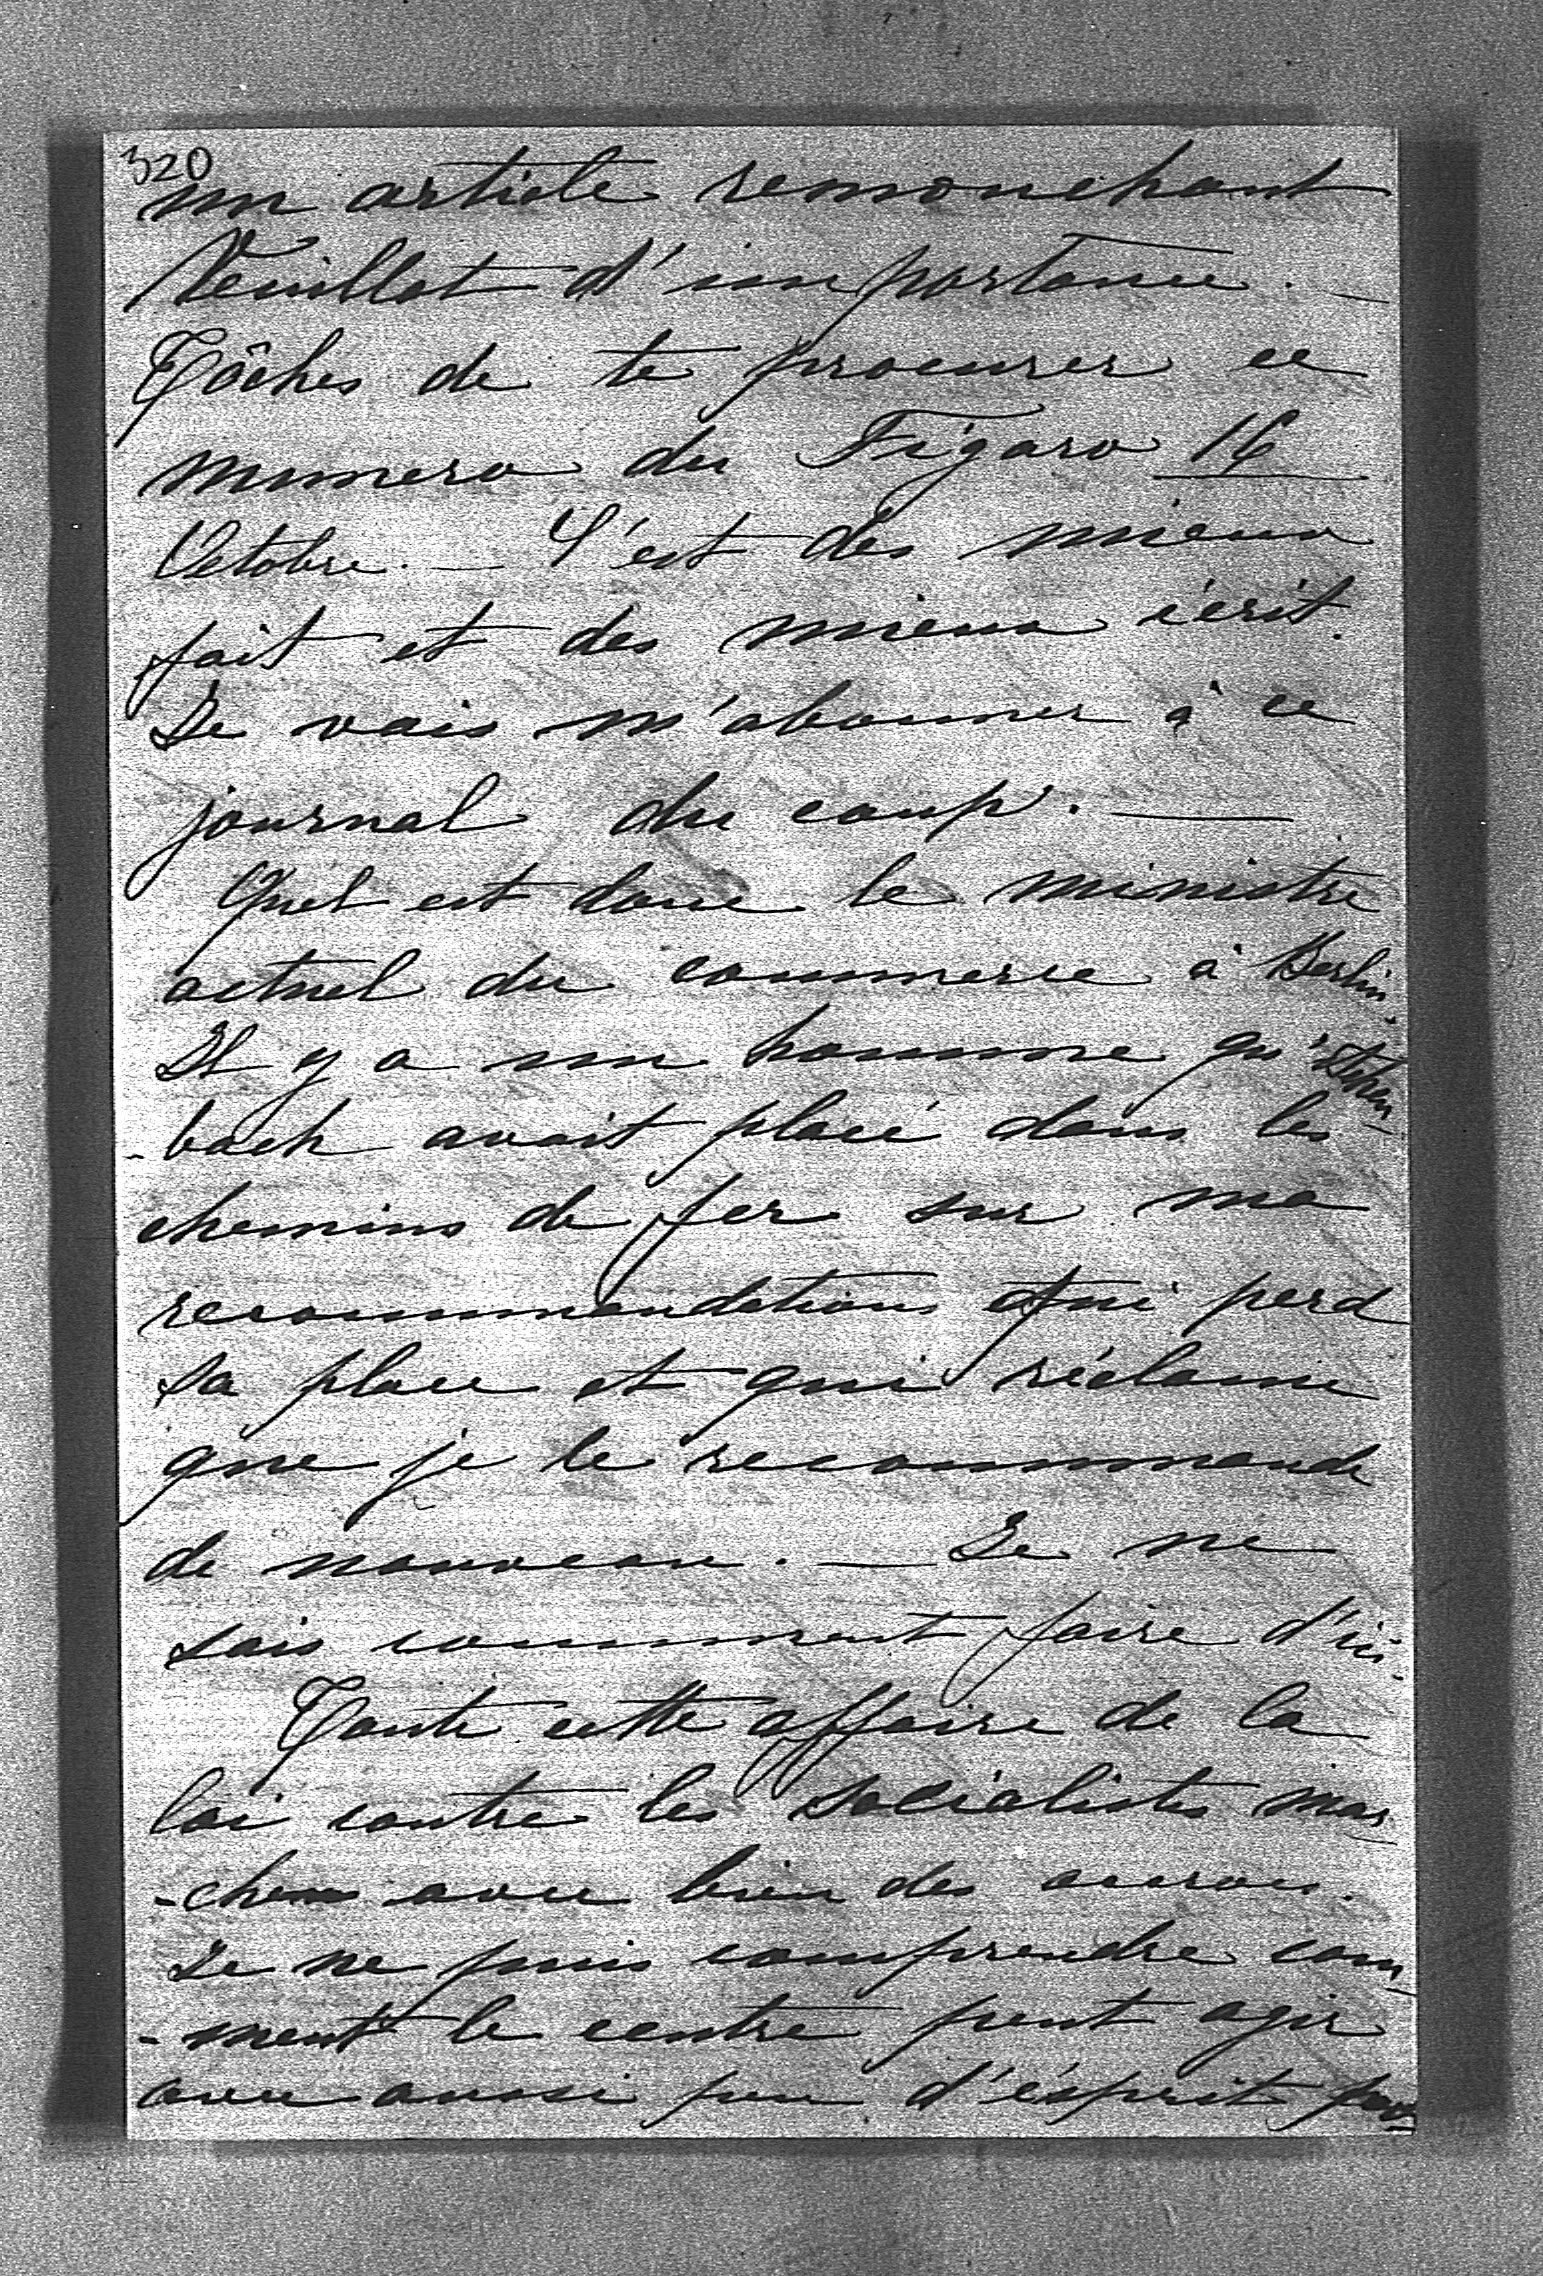 320
un article remouchant
Veuillot d'importance. —
Tâches de te procurer ce
numero du Figaro 16
Octobre. — C'est des mieux
fait et des mieux écrit.
Je vais m'abonner à ce
journal du coup. —
Quel est donc le ministre
actuel du commerce à Berlin.
Il y a un homme qu'Itzen-
-bach avait placé dans les
chemins de fer sur ma
recommendation qui perd
sa place et qui réclame
que je le recommande
de nouveau. — Je ne
sais comment faire d'ici.
Toute cette affaire de la
loi contre les socialistes mar
-chent avec bien des accrocs.
Je ne puis comprendre com
-ment le centre peut agir
avec aussi peu d'ésprit pou